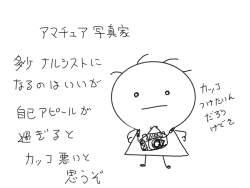 アマチュア写真家
多少ナルシストに
なるのはいいが
自己アピールが
過ぎると
カッコ悪いと
思うぞ
カッコ
つけたいん
だろう
けどさ